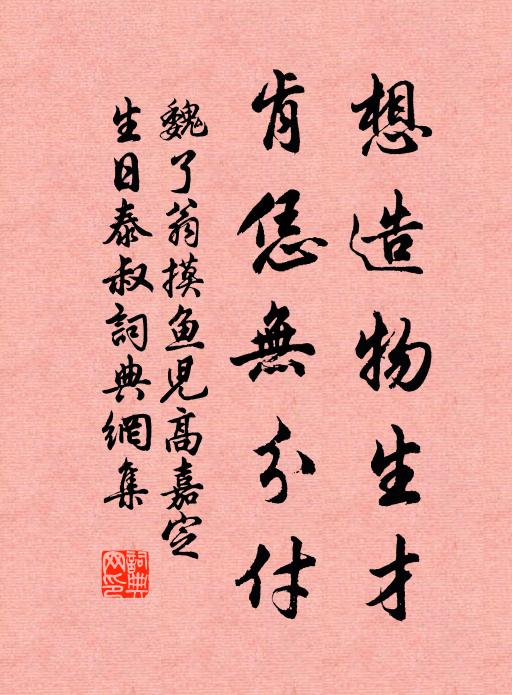 想造物生才
肯恁無分付
魏了翁摸鱼児高嘉定
生日泰叔詞典網集
詞典
网印